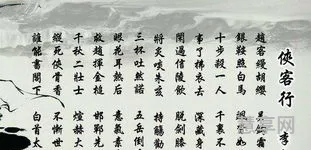 俠客行 李
趙客縵胡纓 吳鉤霜
銀鞍照白馬 颯沓如
十步殺一人 千裏不
事了拂衣去 深藏身
閑過信陵飲 脫劍膝
將炙啖朱亥 持觴勸
三杯吐然諾 五岳倒
眼花耳熱后 意氣素
救趙揮金槌 邯鄲先
千秋二壯士 煊赫大
縱死俠骨香 不慚世
誰能書閣下 白首太